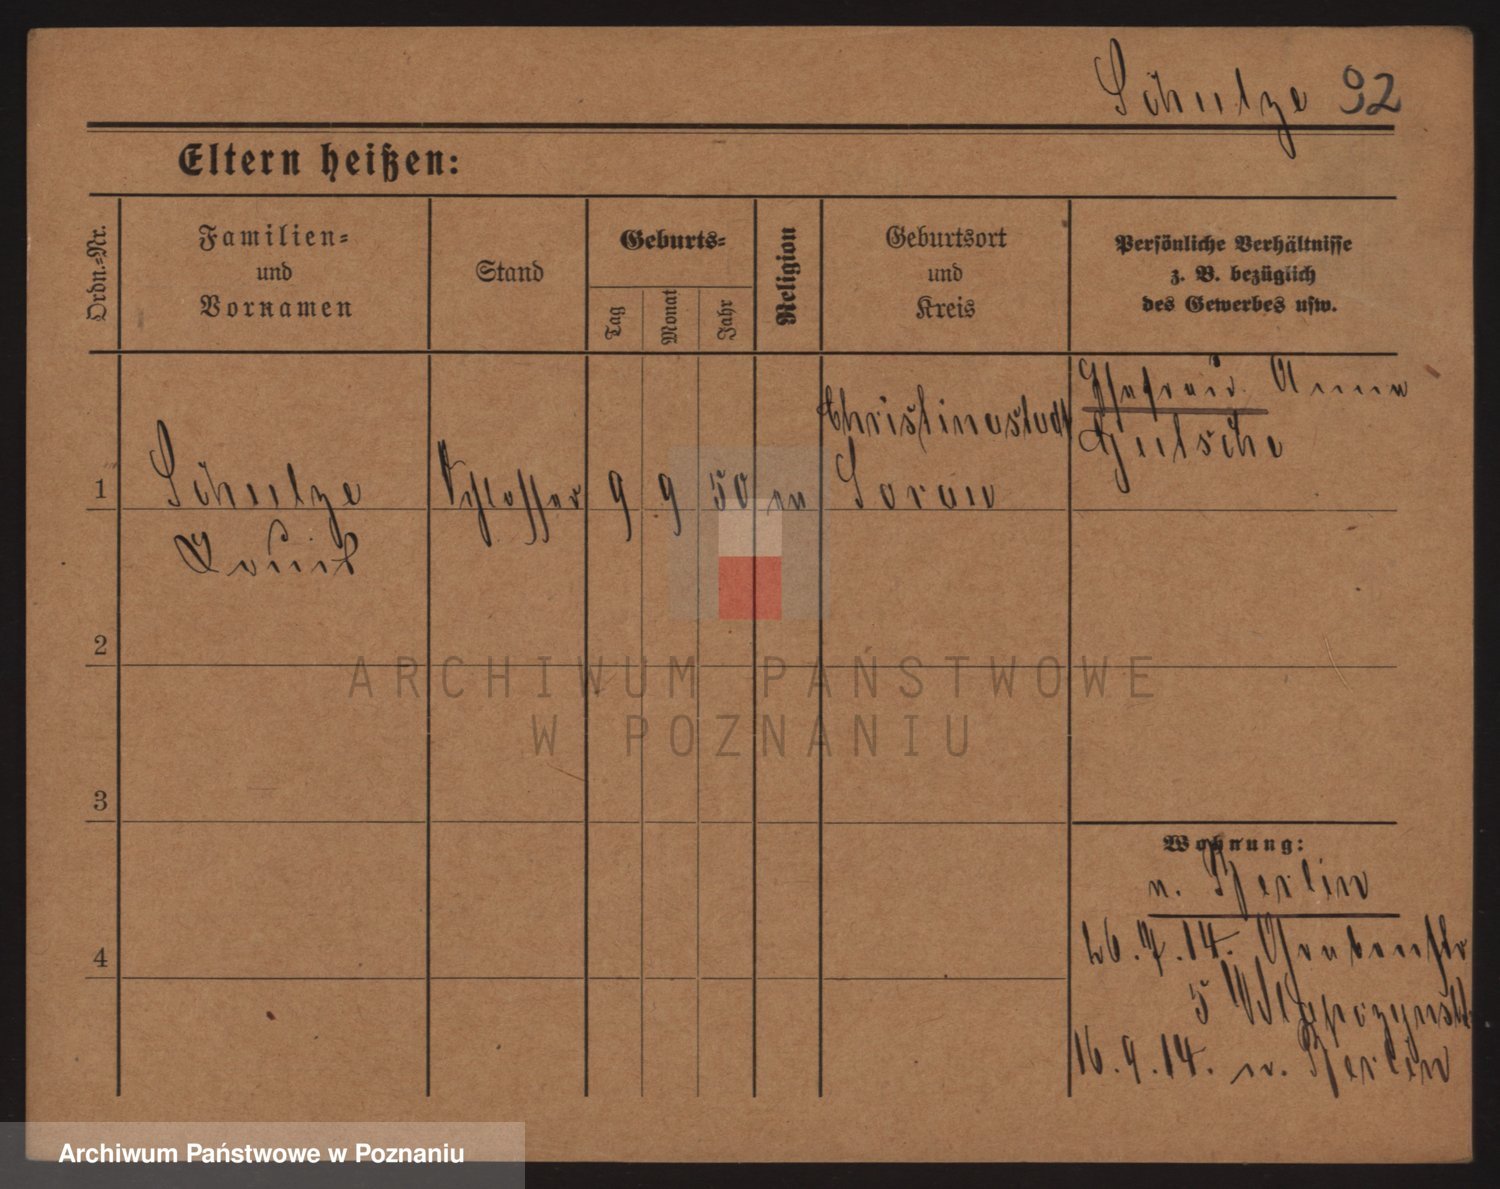 Schulze 92
Eltern heißen:
Ordn.-Nr.
Familien-
und
Vornamen
Stand
Geburts-
Tag
Monat
Jahr
Religion
Geburtsort
und
Kreis
Persönliche Verhältnisse
z. B. bezüglich
des Gewerbes usw.
1
Schulze
Louis
Schlosser
9
9
50
ev
Christinastadt
Sorau
Ehefrau Anna
2
3
4
Wohnung:
n. Berlin
26.7.14. Grabenstr
5
16.9.14. n. Berlin
ARCHIWUM PAŃSTWOWE
W POZNANIU
Archiwum Państwowe w Poznaniu